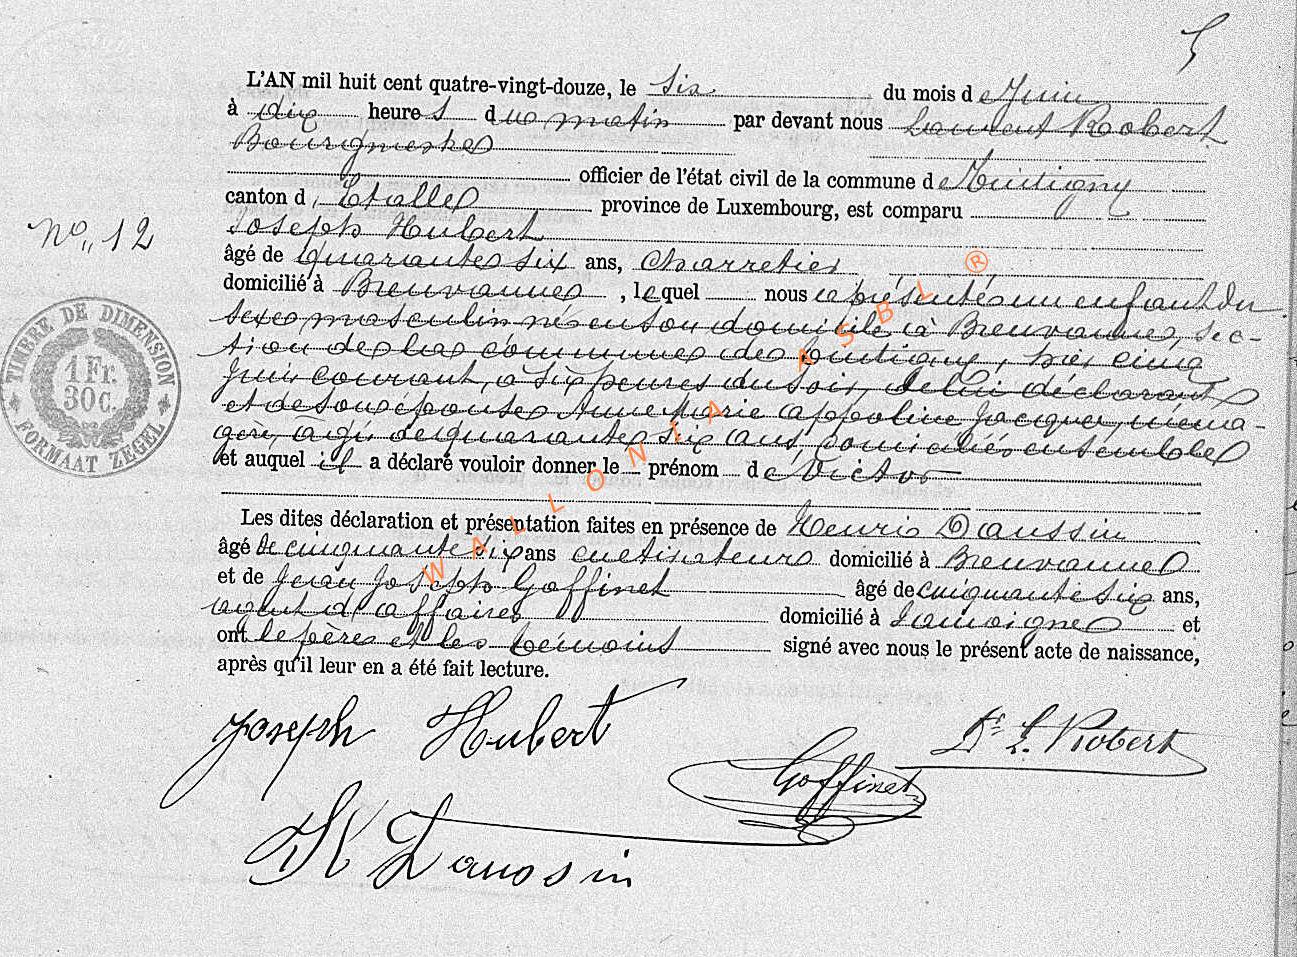 5
L'AN mil huit cent quatre-vingt-douze, le six du mois de Juin
à dix heures du matin par devant nous Laurent Robert
Bourgmestre
officier de l'état civil de la commune de
canton d'Etalle province de Luxembourg, est comparu
Joseph Hubert
No 12
âgé de quarante six ans, charretier
domicilié à Breuvanne, lequel nous a présenté un enfant du
sexe masculin né en son domicile à Breuvanne, sec-
tion de la commune de, hier cinq
Juin courant, à six heures du soir, de lui déclarant
et de son épouse Anne Marie appoline Jacquer, ména-
gère, agée de quarante six ans, domiciliés ensemble
et auquel il a déclaré vouloir donner le prénom de Victor
Les dites déclaration et présentation faites en présence de Henri Daussin
âgé de cinquante six ans cultivateur domicilié à Breuvanne
et de Jean Joseph Goffinet âgé de cinquante six ans,
agent d'affaires domicilié à Jamoigne et
ont le père et les témoins signé avec nous le présent acte de naissance,
après qu'il leur en a été fait lecture.
Joseph Hubert
Dr L. Robert
Goffinet
H Daussin
TIMBRE DE DIMENSION
1 Fr.
30 C.
FORMAAT ZEGEL
WALLONIA ASBL ®